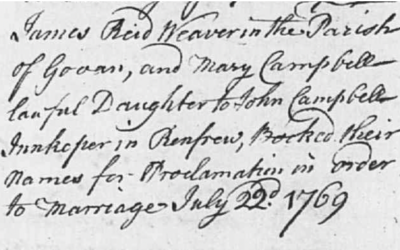 James Reid Weaver in the Parish
of Govan, and Mary Campbell
lauful Daughter to John Campbell
Innkeper in Renfrew, Booked their
names for Proclamation in order
to Marriage July 22d. 1769